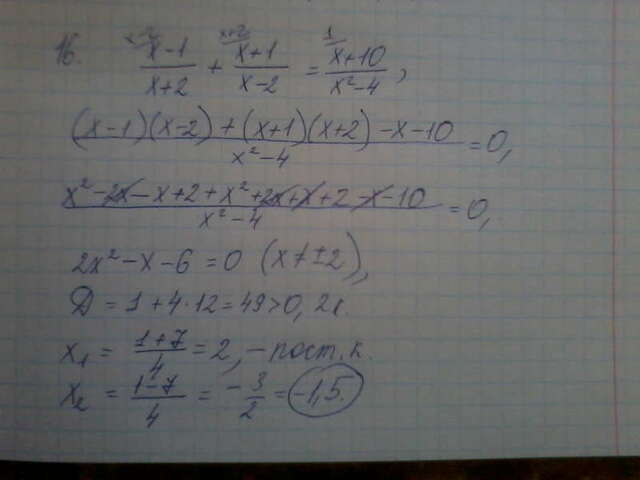 16. (x-1)/(x+2) + (x+1)/(x-2) = (x+10)/(x²-4),
x-2 x+2 1
((x-1)(x-2)+(x+1)(x+2)-x-10)/(x²-4) = 0,
(x²-2x-x+2+x²+2x+x+2-x-10)/(x²-4) = 0,
2x²-x-6=0 (x≠±2),
D=1+4·12=49>0, 2к.
x₁ = (1+7)/4 = 2, - пост. к.
x₂ = (1-7)/4 = -3/2 = -1,5.